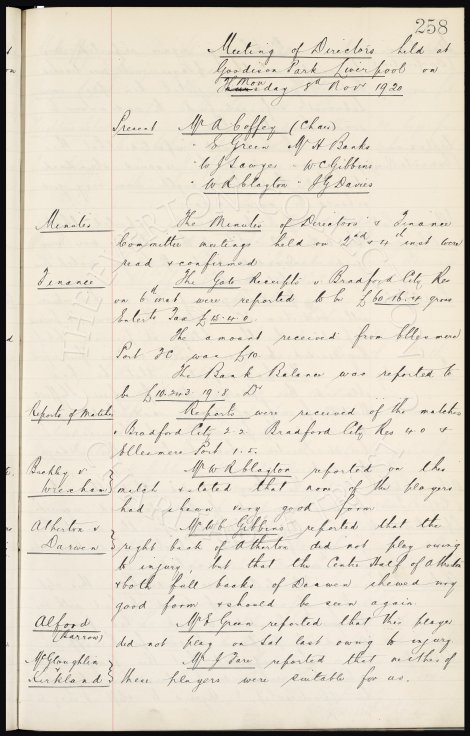 258
Meeting of Directors held at
Goodison Park Liverpool on
Monday 8th Novr 1920
Present Mr A Coffey (Chair)
" E Green Mr H Banks
" W J Sawyer " W C Gibbins
" W R Clayton " J G Davies
Minutes The Minutes of Directors' & Finance
Committee meetings held on 2nd & 4th inst were
read & confirmed
Finance The Gate Receipts v Bradford City Res
on 6th inst were reported to be £60.16.4 gross
Enterts Tax £15.4.0.
The amount received from Ellesmere
Port FC was £10.
The Bank Balance was reported to
be £10.243.19.8 Dr
Reports of Matches Reports were received of the matches
v Bradford City 2.2. Bradford City Res 4.0 &
Ellesmere Port 1.5.
v Mr W R Clayton reported on this
Wrexham match & stated that none of the players
had shewn very good form
Atherton v Mr W C Gibbins reported that the
Darwen right back of Atherton did not play owing
to injury, but that the Centre Half of Atherton
& both full backs of Darwen shewed very
good form & should be seen again
Alford Mr E Green reported that this player
(Barrow) did not play on Sat last owing to injury
McGloughlin Mr J Fare reported that neither of
Kirkland these players were suitable for us.